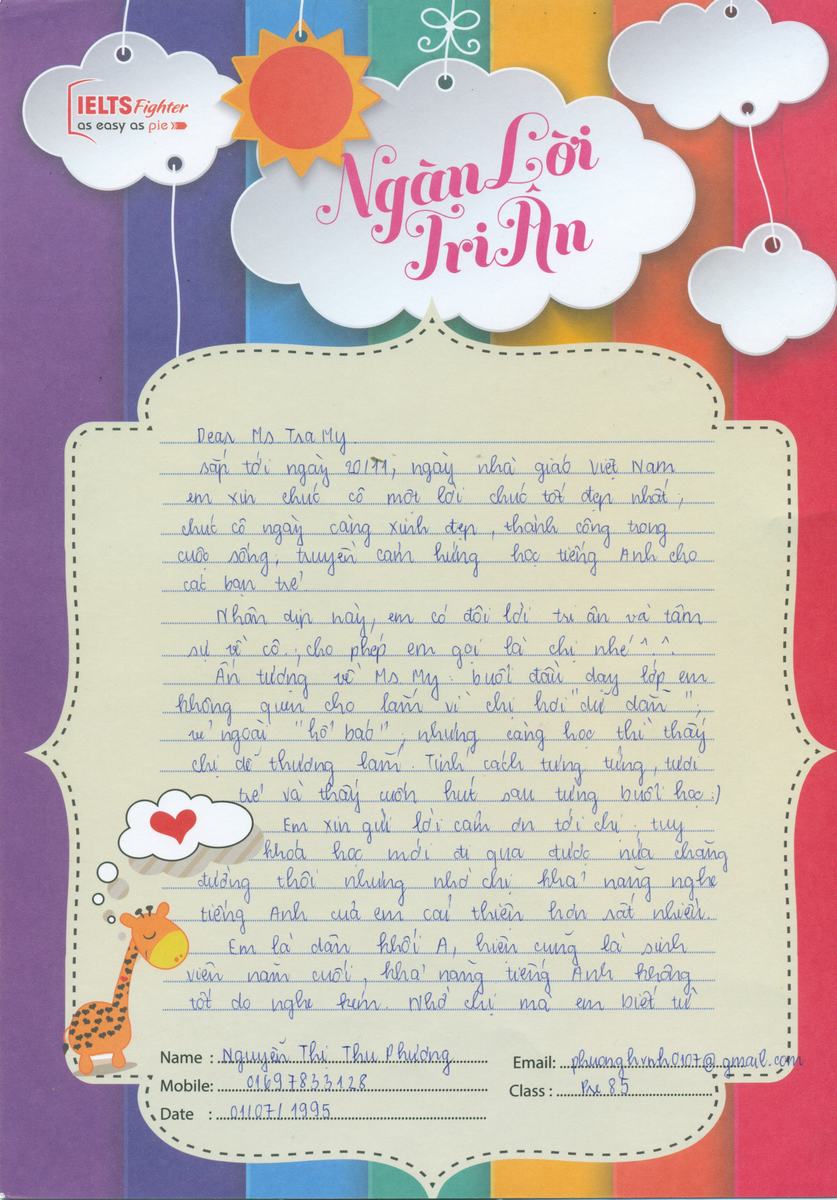 IELTS Fighter
as easy as pie
Ngàn Lời
Tri Ân
Dear Ms Tra My.
sắp tới ngày 20/11, ngày nhà giáo Việt Nam
em xin chúc cô một lời chúc tốt đẹp nhất,
chúc cô ngày càng xinh đẹp, thành công trong
cuộc sống, truyền cảm hứng học tiếng Anh cho
các bạn trẻ
Nhân dịp này, em có đôi lời tri ân và tâm
sự về cô, cho phép em gọi là chị nhé ^.^
Ấn tượng về Ms My: buổi đầu dạy lớp em
không quen cho lắm vì chị hơi "dữ dằn",
vẻ ngoài "hổ báo", nhưng càng học thì thấy
chị dễ thương lắm. Tính cách tưng tửng, tươi
trẻ và thấy cuốn hút sau từng buổi học :)
Em xin gửi lời cảm ơn tới chị, tuy
khoá học mới đi qua được nửa chặng
đường thôi nhưng nhờ chị khả năng nghe
tiếng Anh của em cải thiện hơn rất nhiều.
Em là dân khối A, hiện cũng là sinh
viên năm cuối, khả năng tiếng Anh không
tốt do nghe kém. Nhờ chị mà em biết từ
Name : Nguyễn Thị Thu Phương
Email: phuonghvnh0107@gmail.com
Mobile: 01697833128
Class : Pre 85
Date : 01/07/1995